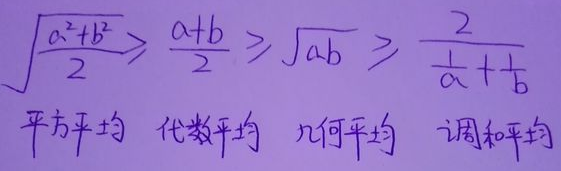 √((a²+b²)/2) ≥ (a+b)/2 ≥ √(ab) ≥ 2/(1/a + 1/b)
平方平均 代数平均 几何平均 调和平均